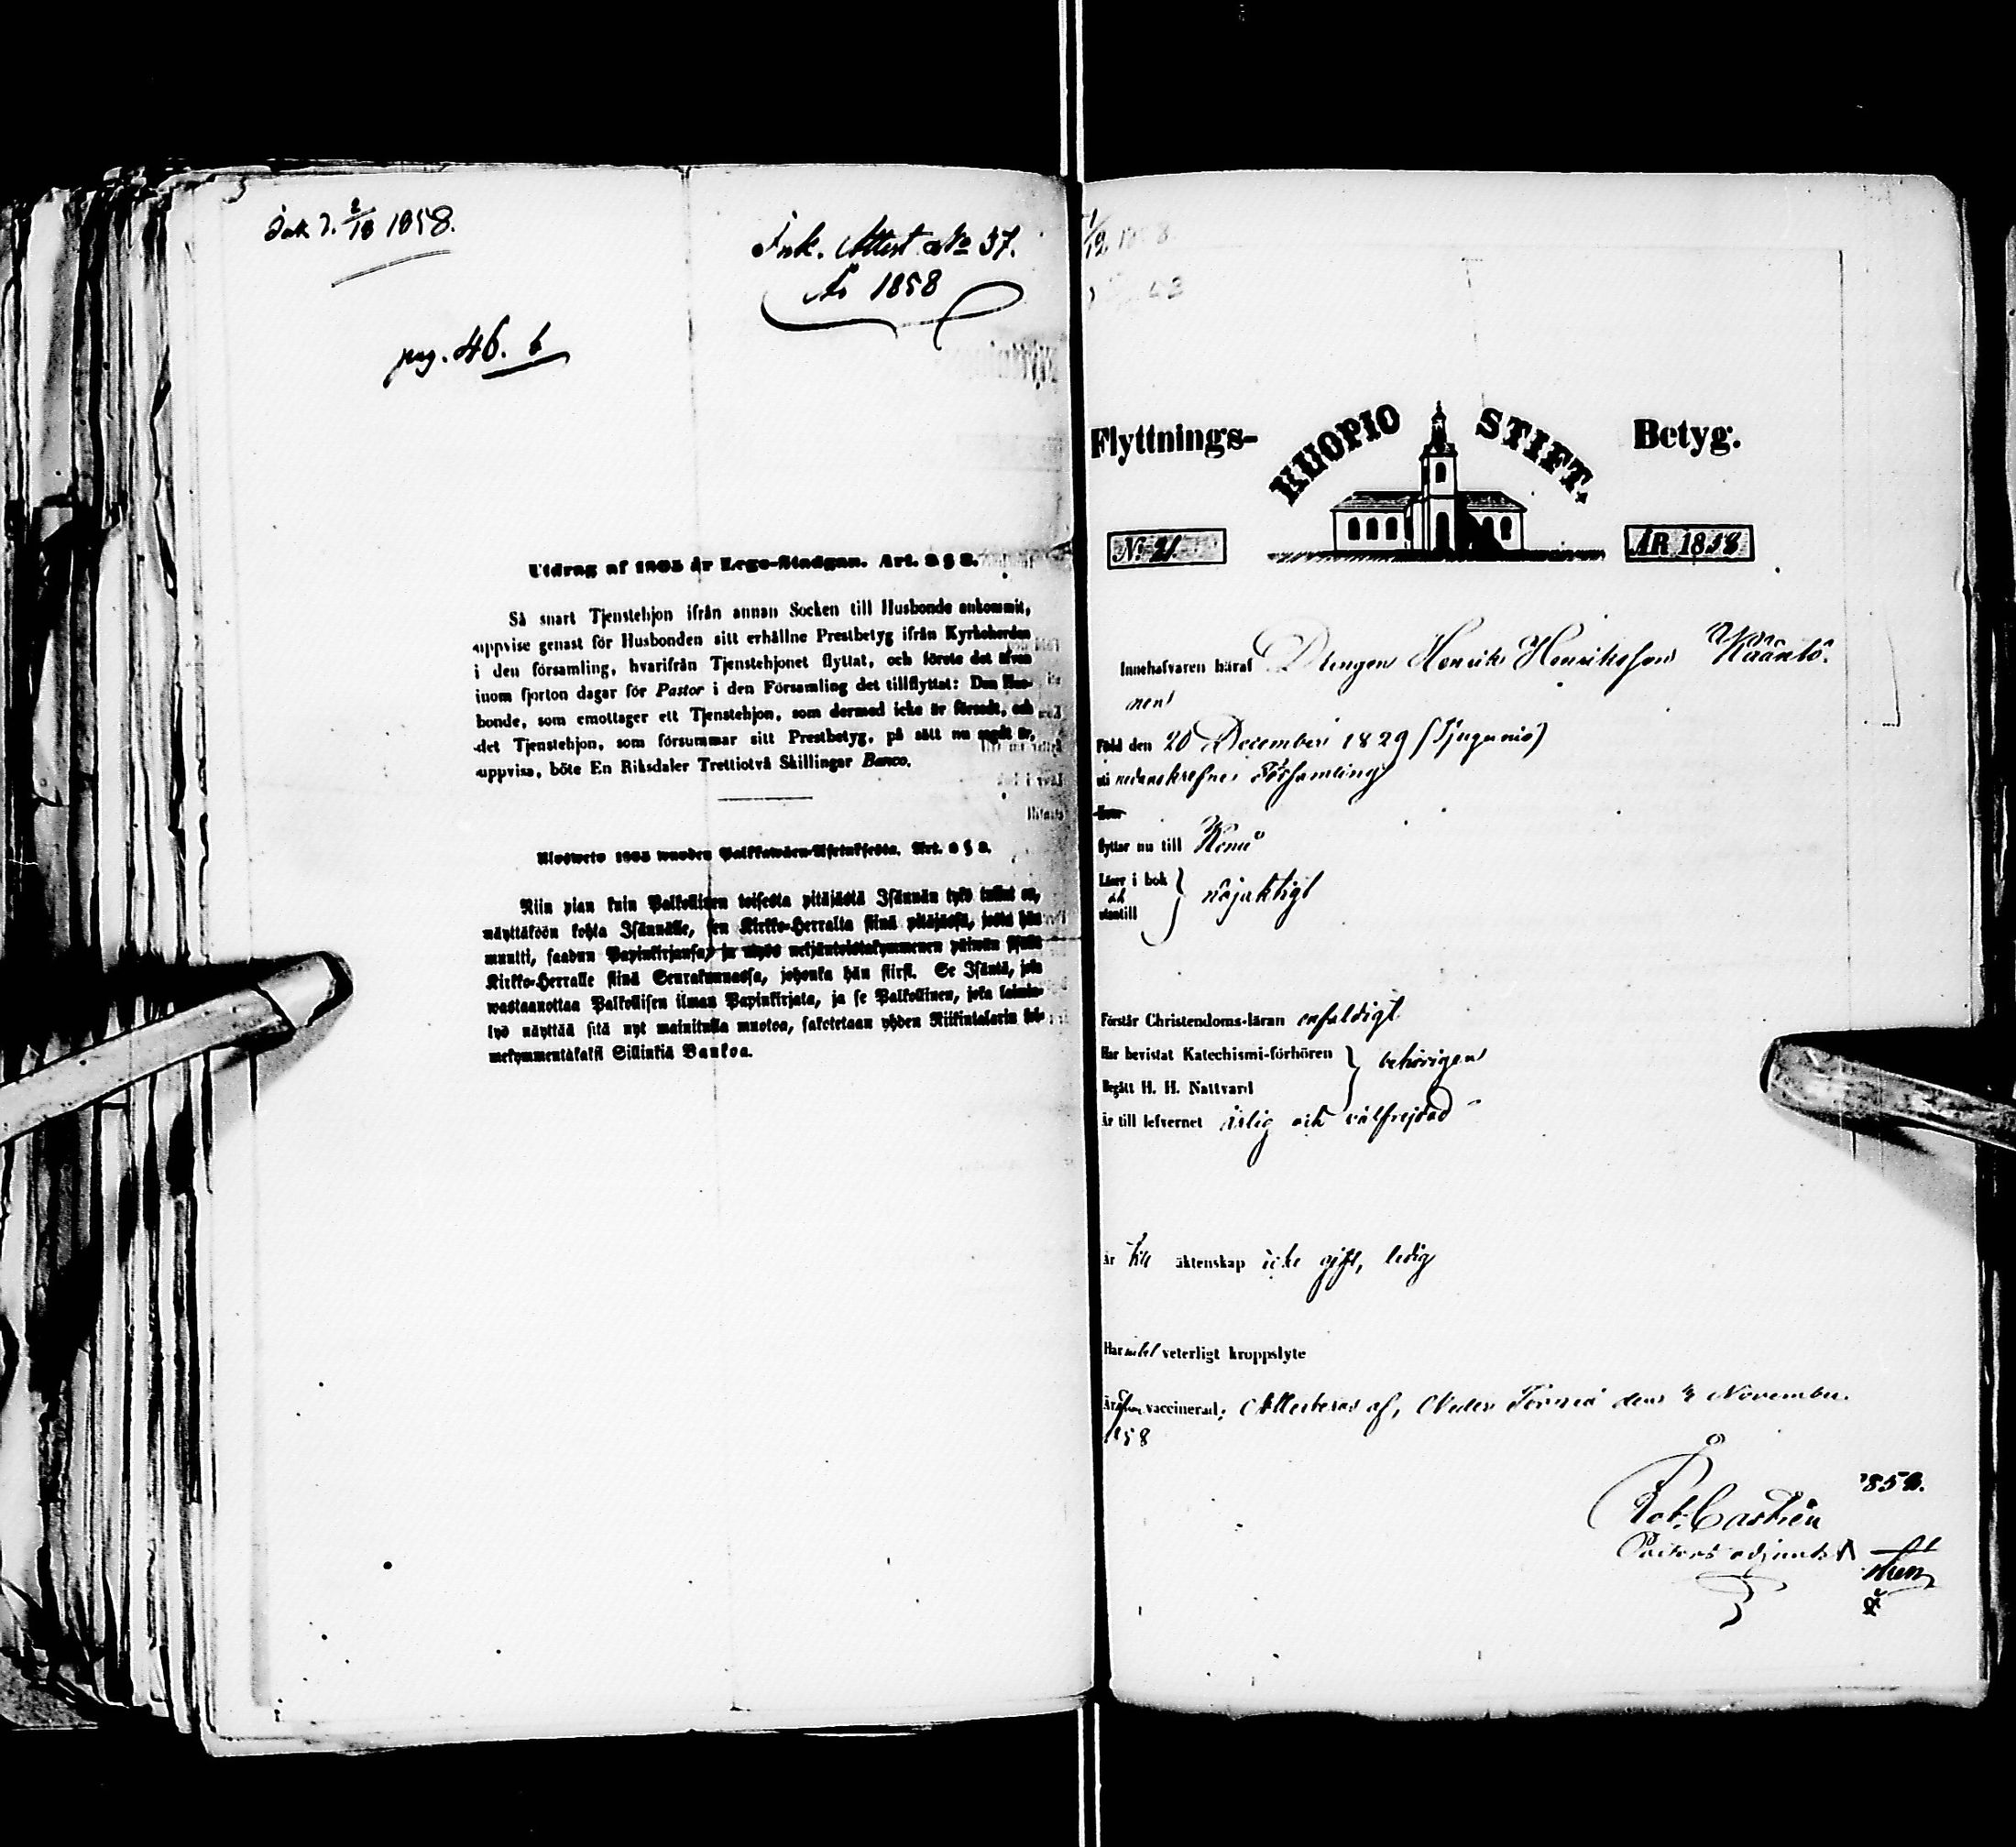 1858.
Ink. Attest No 37.
År 1858
pag. 46. b
Utdrag af 1805 år Lego-Stadgan. Art. 2 § 2.
Så snart Tjenstehjon ifrån annan Socken till Husbonde ankommit,
uppvise genast för Husbonden sitt erhållne Prestbetyg ifrån Kyrkoherden
i den församling, hvarifrån Tjenstehjonet flyttat, och förete det äfven
inom fjorton dagar för Pastor i den Församling det tillflyttat: Den Hus-
bonde, som emottager ett Tjenstehjon, som dermed icke är försedt, och
det Tjenstehjon, som försummar sitt Prestbetyg, på sätt nu sagdt är,
uppvisa, böte En Riksdaler Trettiotvå Skillingar Banco.
Ulosweto 1805 wuoden Palkkawäen-Asetuksesta. Art.
Niin pian kuin Palkollinen toisesta pitäjästä Isännän tykö tullut on,
näyttäköön kohta Isännälle, sen Kirkko-Herralta siinä pitäjässä, josta hän
muutti, saadun Papinkirjansa, ja myös neljäntoistakymmenen päiwän sisällä
Kirkko-Herralle siinä Seurakunnassa, johonka hän siirsi. Se Isäntä, joka
wastaanottaa Palkollisen ilman Papinkirjata, ja se Palkollinen, joka laimin-
lyö näyttää sitä nyt mainitulla muotoa, sakotetaan yhden Riikintalarin kol-
mekymmentäkaksi Sillinkiä Bankoa.
Flyttnings- KUOPIO STIFT. Betyg.
No 21. ÅR 1858
Innehafvaren häraf Drengen Henrik Henriksson Wäänlö-
nen
Född den 20 December 1829 (Tjugunio)
uti nedanskrefne Församling
flyttar nu till Kemi
Läser i bok
och
utantill
nöjaktigt
Förstår Christendoms-läran enfaldigt
Har bevistat Katechismi-förhören
behörigen
Begått H. H. Nattvard
Är till lefvernet ärlig och välfrejdad
Är till äktenskap icke gift, ledig
Har intet veterligt kroppslyte
Är vaccinerad; Attesteras af, Neder Torneå den November.
1858
Rob. Castrén
Pastors adjunkt